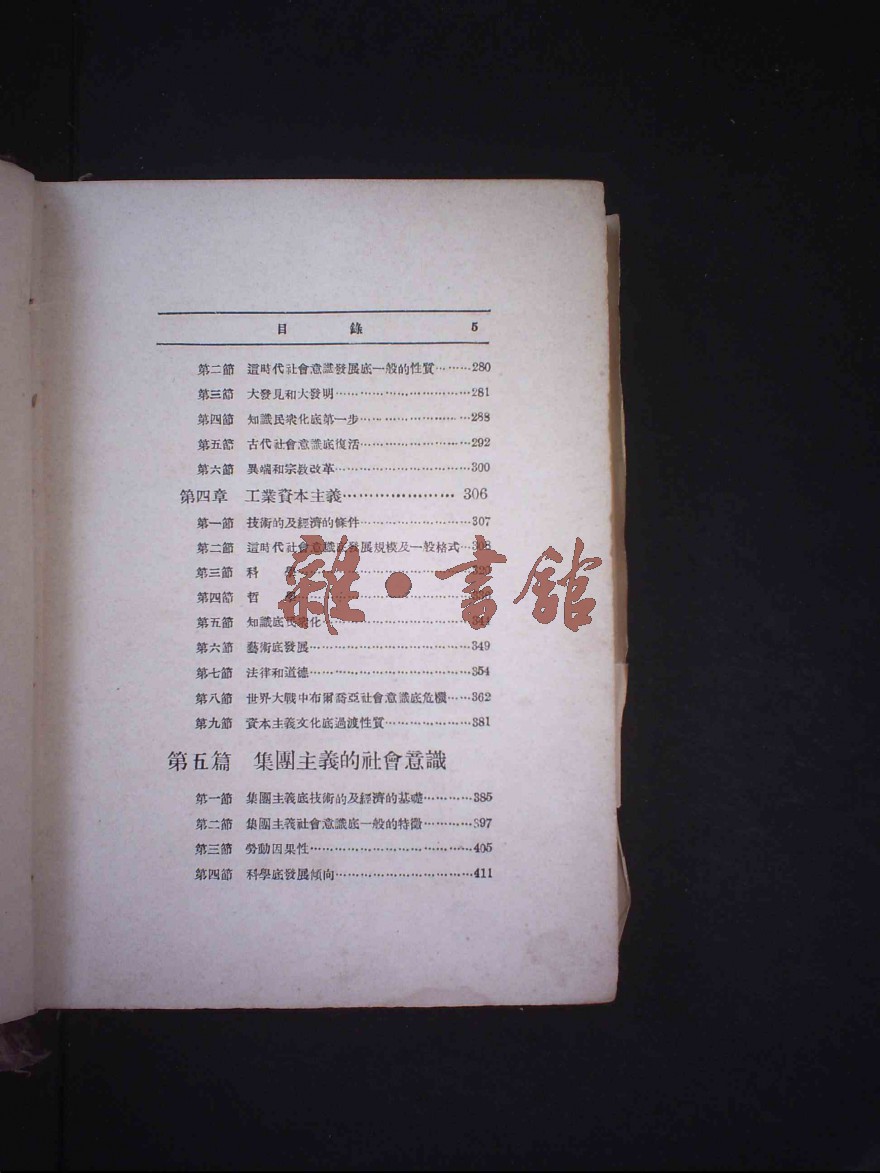 目錄 5
第二節 這時代社會意識發展底一般的性質………280
第三節 大發見和大發明………281
第四節 知識民衆化底第一步………288
第五節 古代社會意識底復活………292
第六節 異端和宗教改革………300
第四章 工業資本主義………306
第一節 技術的及經濟的條件………307
第二節 這時代社會意識底發展規模及一般格式…
第三節 科學………
第四節 哲學………
第五節 知識底民衆化………
第六節 藝術底發展………349
第七節 法律和道德………354
第八節 世界大戰中布爾喬亞社會意識底危機……362
第九節 資本主義文化底過渡性質………381
第五篇 集團主義的社會意識
第一節 集團主義底技術的及經濟的基礎………385
第二節 集團主義社會意識底一般的特徵………397
第三節 勞動因果性………405
第四節 科學底發展傾向………411
雜·書館